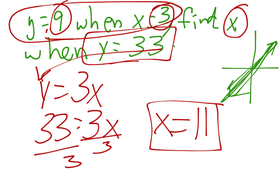 y=9 when x=3 find x
when y=33.
y=3x
33=3x
3 3
x=11